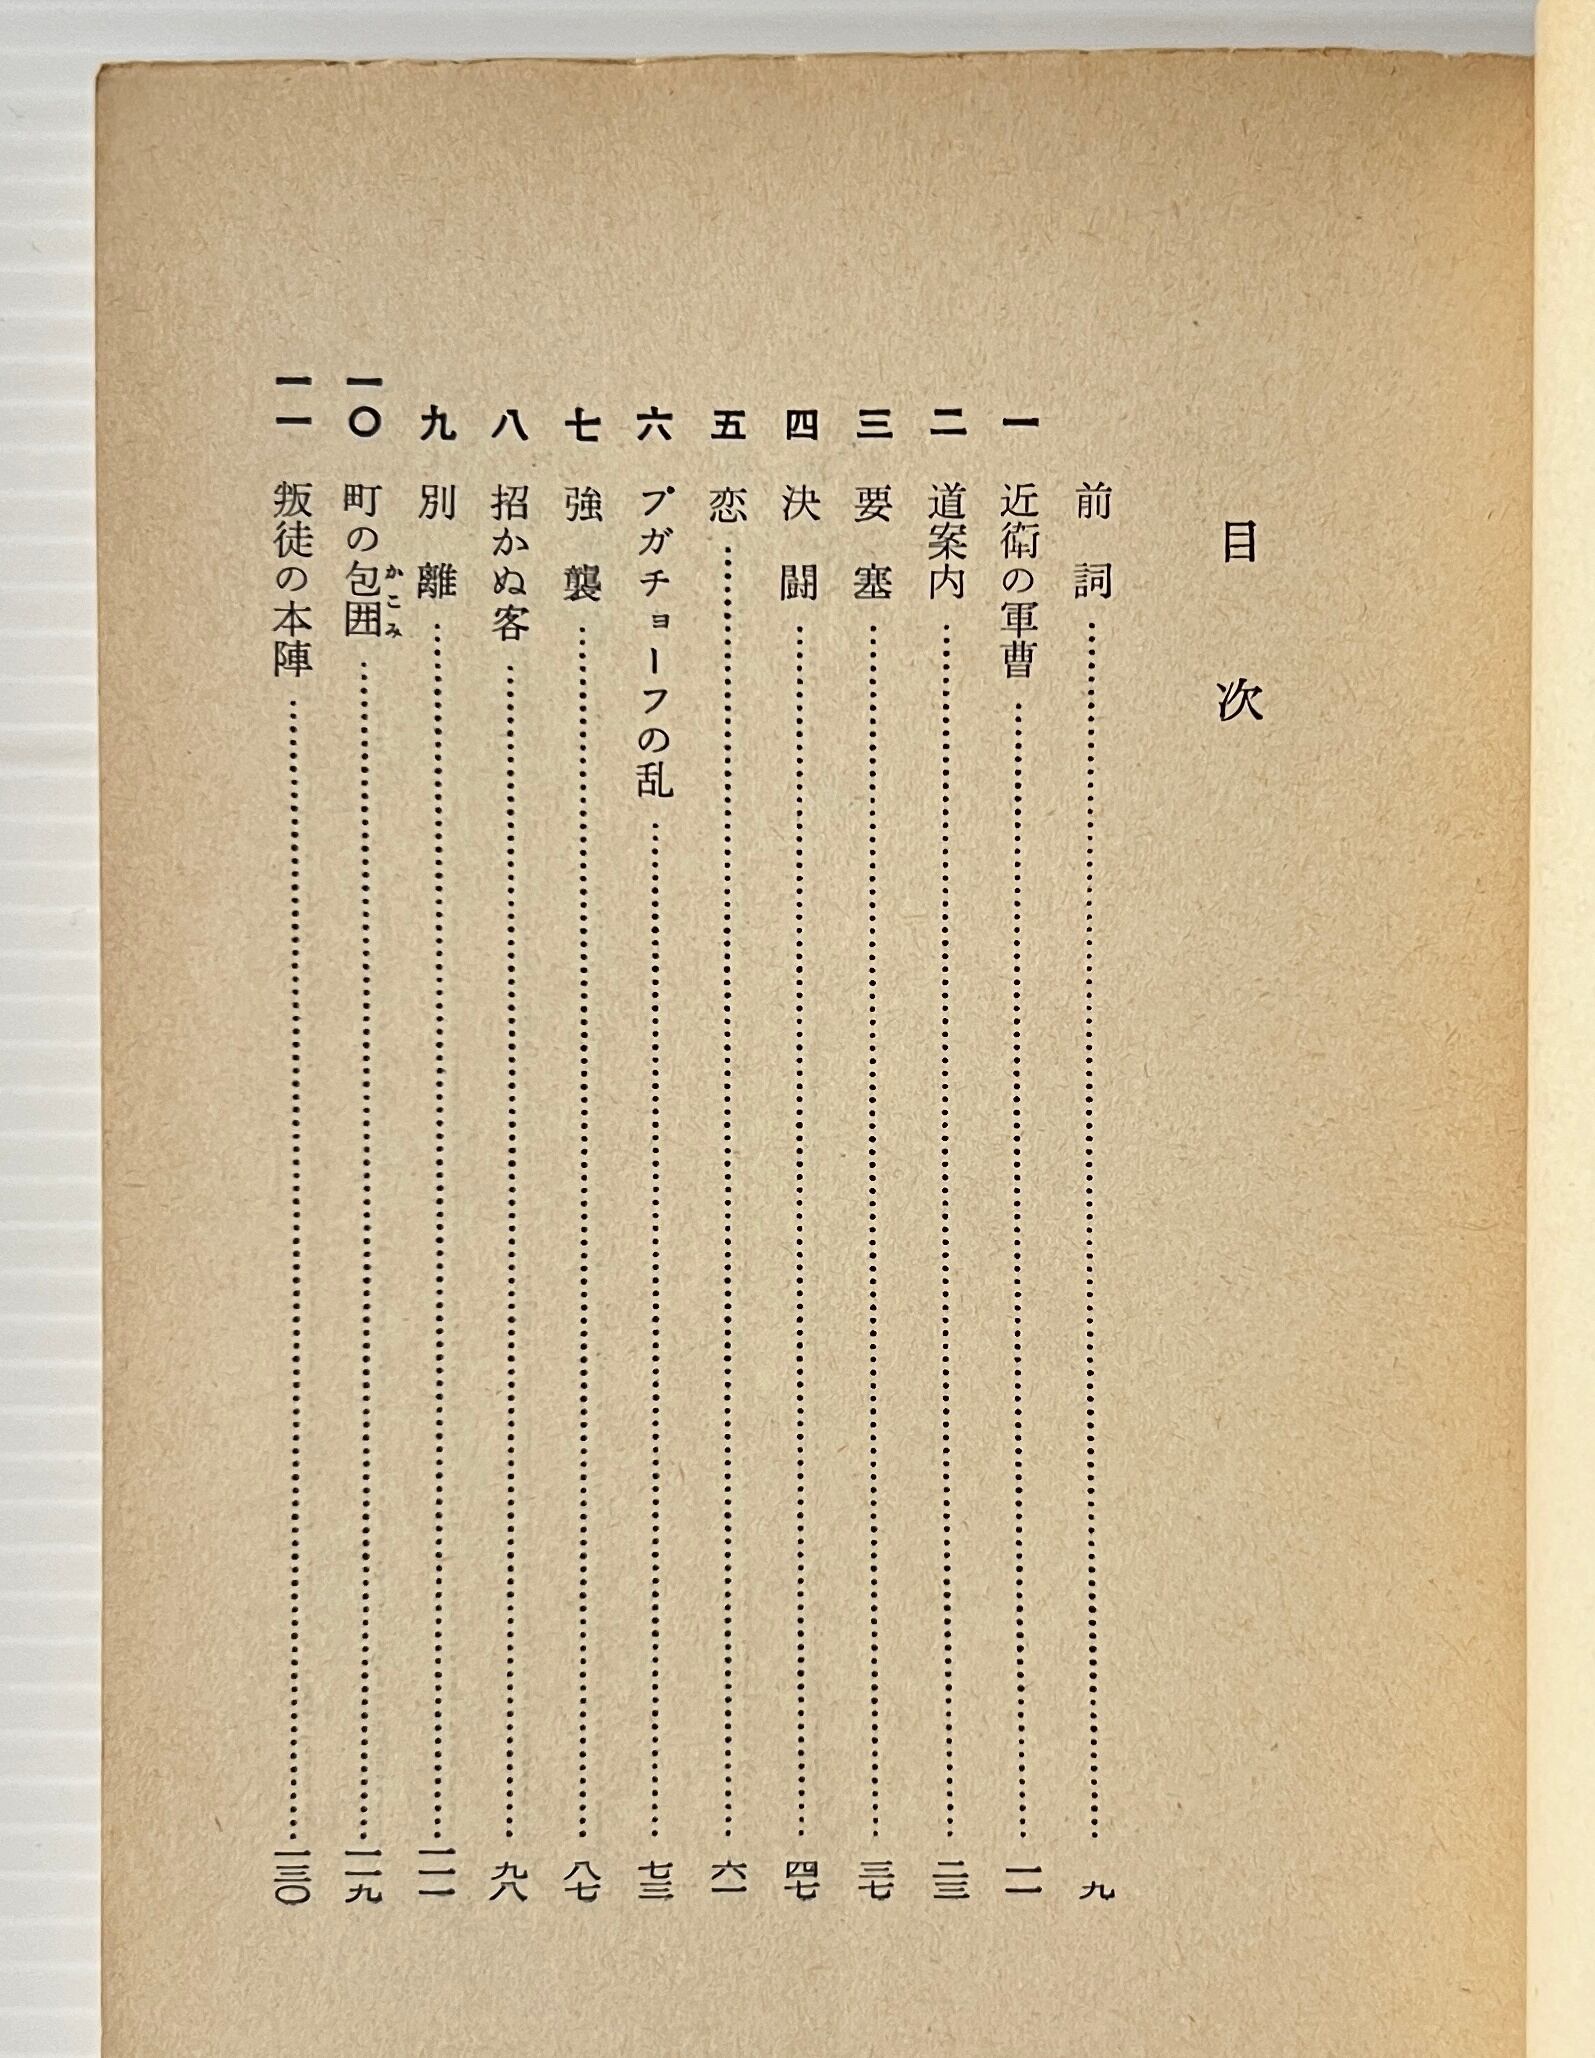 目次
前詞……九
一 近衛の軍曹……一一
二 道案内……二三
三 要塞……三七
四 決闘……四七
五 恋……六一
六 プガチョーフの乱……七三
七 強襲……八七
八 招かぬ客……九八
九 別離……一一一
一〇 町の包囲……一一九
かこみ
一一 叛徒の本陣……一三〇